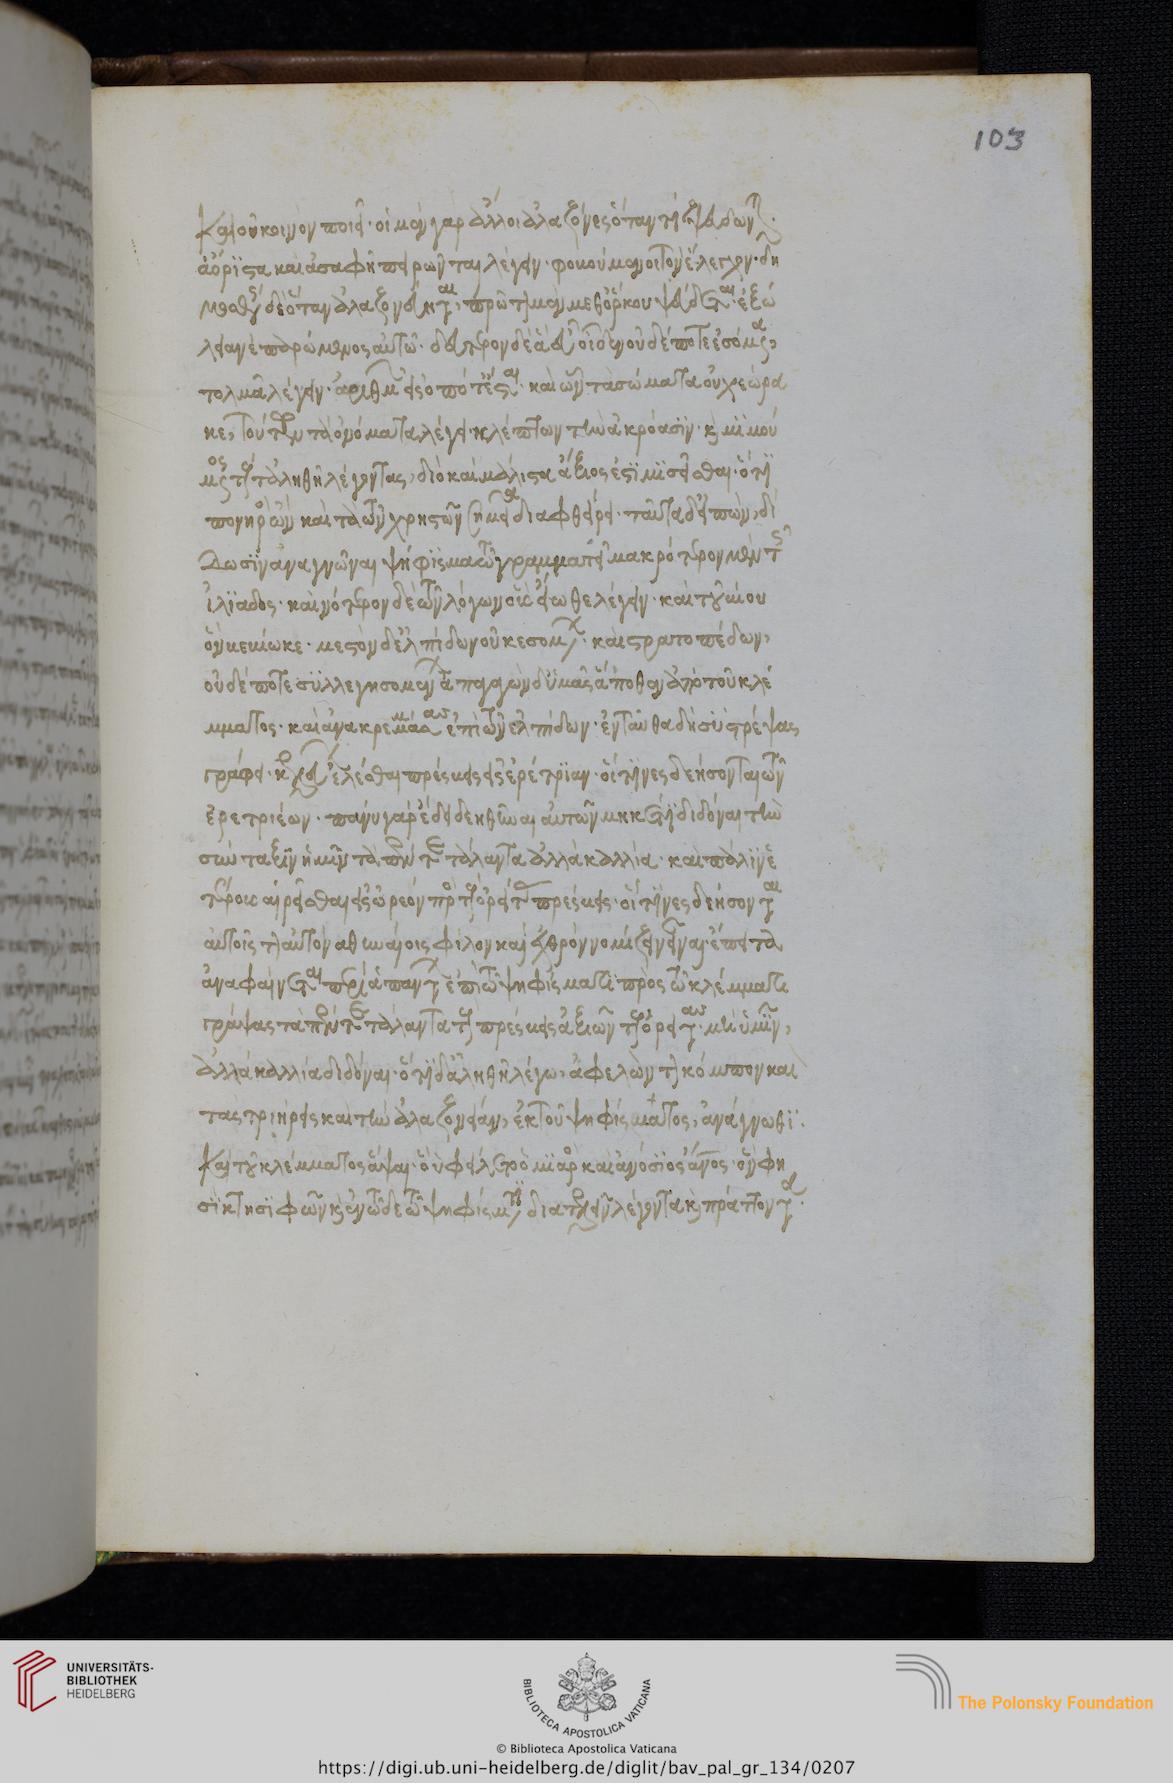 καὶ οὐ κοινὸν ποιεῖ· οἱ μὲν γὰρ ἄλλοι ἀλαζόνες ὅταν τὶ ψεύδωνται·
ἀόριστα καὶ ἀσαφῆ πειρῶνται λέγειν· φοβούμενοι τὸν ἔλεγχον· δη
μοσθένης δὲ ὅταν ἀλαζονεύηται, πρῶτον μὲν μεθ ὅρκου ψεύδεται· ἐξώ
λειαν ἐπαρώμενος αὑτῷ· δεύτερον δὲ ἃ εὖ οἶδεν οὐδέποτε ἐσόμενα,
τολμᾶ λέγειν· ἀριθμῶν εἰς ὁπότ ἔσται· καὶ ὧν τὰ σώματα οὐχ ἑώρα
κε, τούτων τὰ ὀνόματα λέγει· κλέπτων τὴν ἀκρόασιν· καὶ μιμού
μενος τοὺς τἀληθῆ λέγοντας, διὸ καὶ μάλιστα ἄξιος ἐστὶ μισεῖσθαι· ὅτι
πονηρὸς ὢν καὶ τὰ τῶν χρηστῶν σημεῖα διαφθείρει· ταῦτα δ εἰπὼν, δί
δωσιν ἀναγνῶναι ψήφισμα τῷ γραμματεῖ μακρότερον μὲν τῆς
ἰλιάδος· καινότερον δὲ τῶν λόγων οὓς εἴωθε λέγειν· καὶ τοῦ βίου
ὃν βεβίωκε· μεστὸν δ ἐλπίδων οὐκ ἐσομένων· καὶ στρατοπέδων,
οὐδέποτε συλλεγησομένων ἀπαγαγὼν δ ὑμᾶς ἄποθεν ἀπὸ τοῦ κλέ
μματος· καὶ ἀνακρεμάσας ἐπὶ τῶν ἐλπίδων· ἐνταῦθα δὴ συστρέψας
γράφει· κελεύων ἑλέσθαι πρέσβεις εἰς ἐρέτριαν· οἵτινες δεήσονται τῶν
ἐρετριέων· πάνυ γὰρ ἔδει δεηθῆναι αὐτῶν μηκέτι διδόναι τὴν
σύνταξιν ἡμῖν τὰ πέντε τάλαντα ἀλλὰ καλλία· καὶ πάλιν ἑ
τέρους αἱρεῖσθαι εἰς ὠρεὸν πρὸς τοὺς ὠρείτας πρέσβεις· οἵτινες δεήσονται
αὐτοῖς τὸν αὐτὸν ἀθηναίοις φίλον καὶ ἐχθρὸν νομίζειν εἶναι· ἔπειτα
ἀναφαίνεται περὶ ἅπαντα ἐπὶ τῷ ψηφίσματι πρὸς τῷ κλέμματι
γράψας τὰ πέντε τάλαντα τοὺς πρέσβεις ἀξιοῦν τοὺς ὠρείτας· μὴ ὑμῖν,
ἀλλὰ καλλία διδόναι· ὅτι δ ἀληθῆ λέγω, ἀφελὼν τὸν κόμπον καὶ
τὰς τριήρεις καὶ τὴν ἀλαζονείαν, ἐκ τοῦ ψηφίσματος, ἀνάγνωθι·
καὶ τοῦ κλέμματος ἅψαι· ὃ ὑφείλετο ὁ μιαρὸς καὶ ἀνόσιος ἄνθρωπος· ὅν φη
σὶ κτησιφῶν καὶ ἐν τῷδε τῷ ψηφίσματι διατελεῖν λέγοντα καὶ πράττοντα·
103